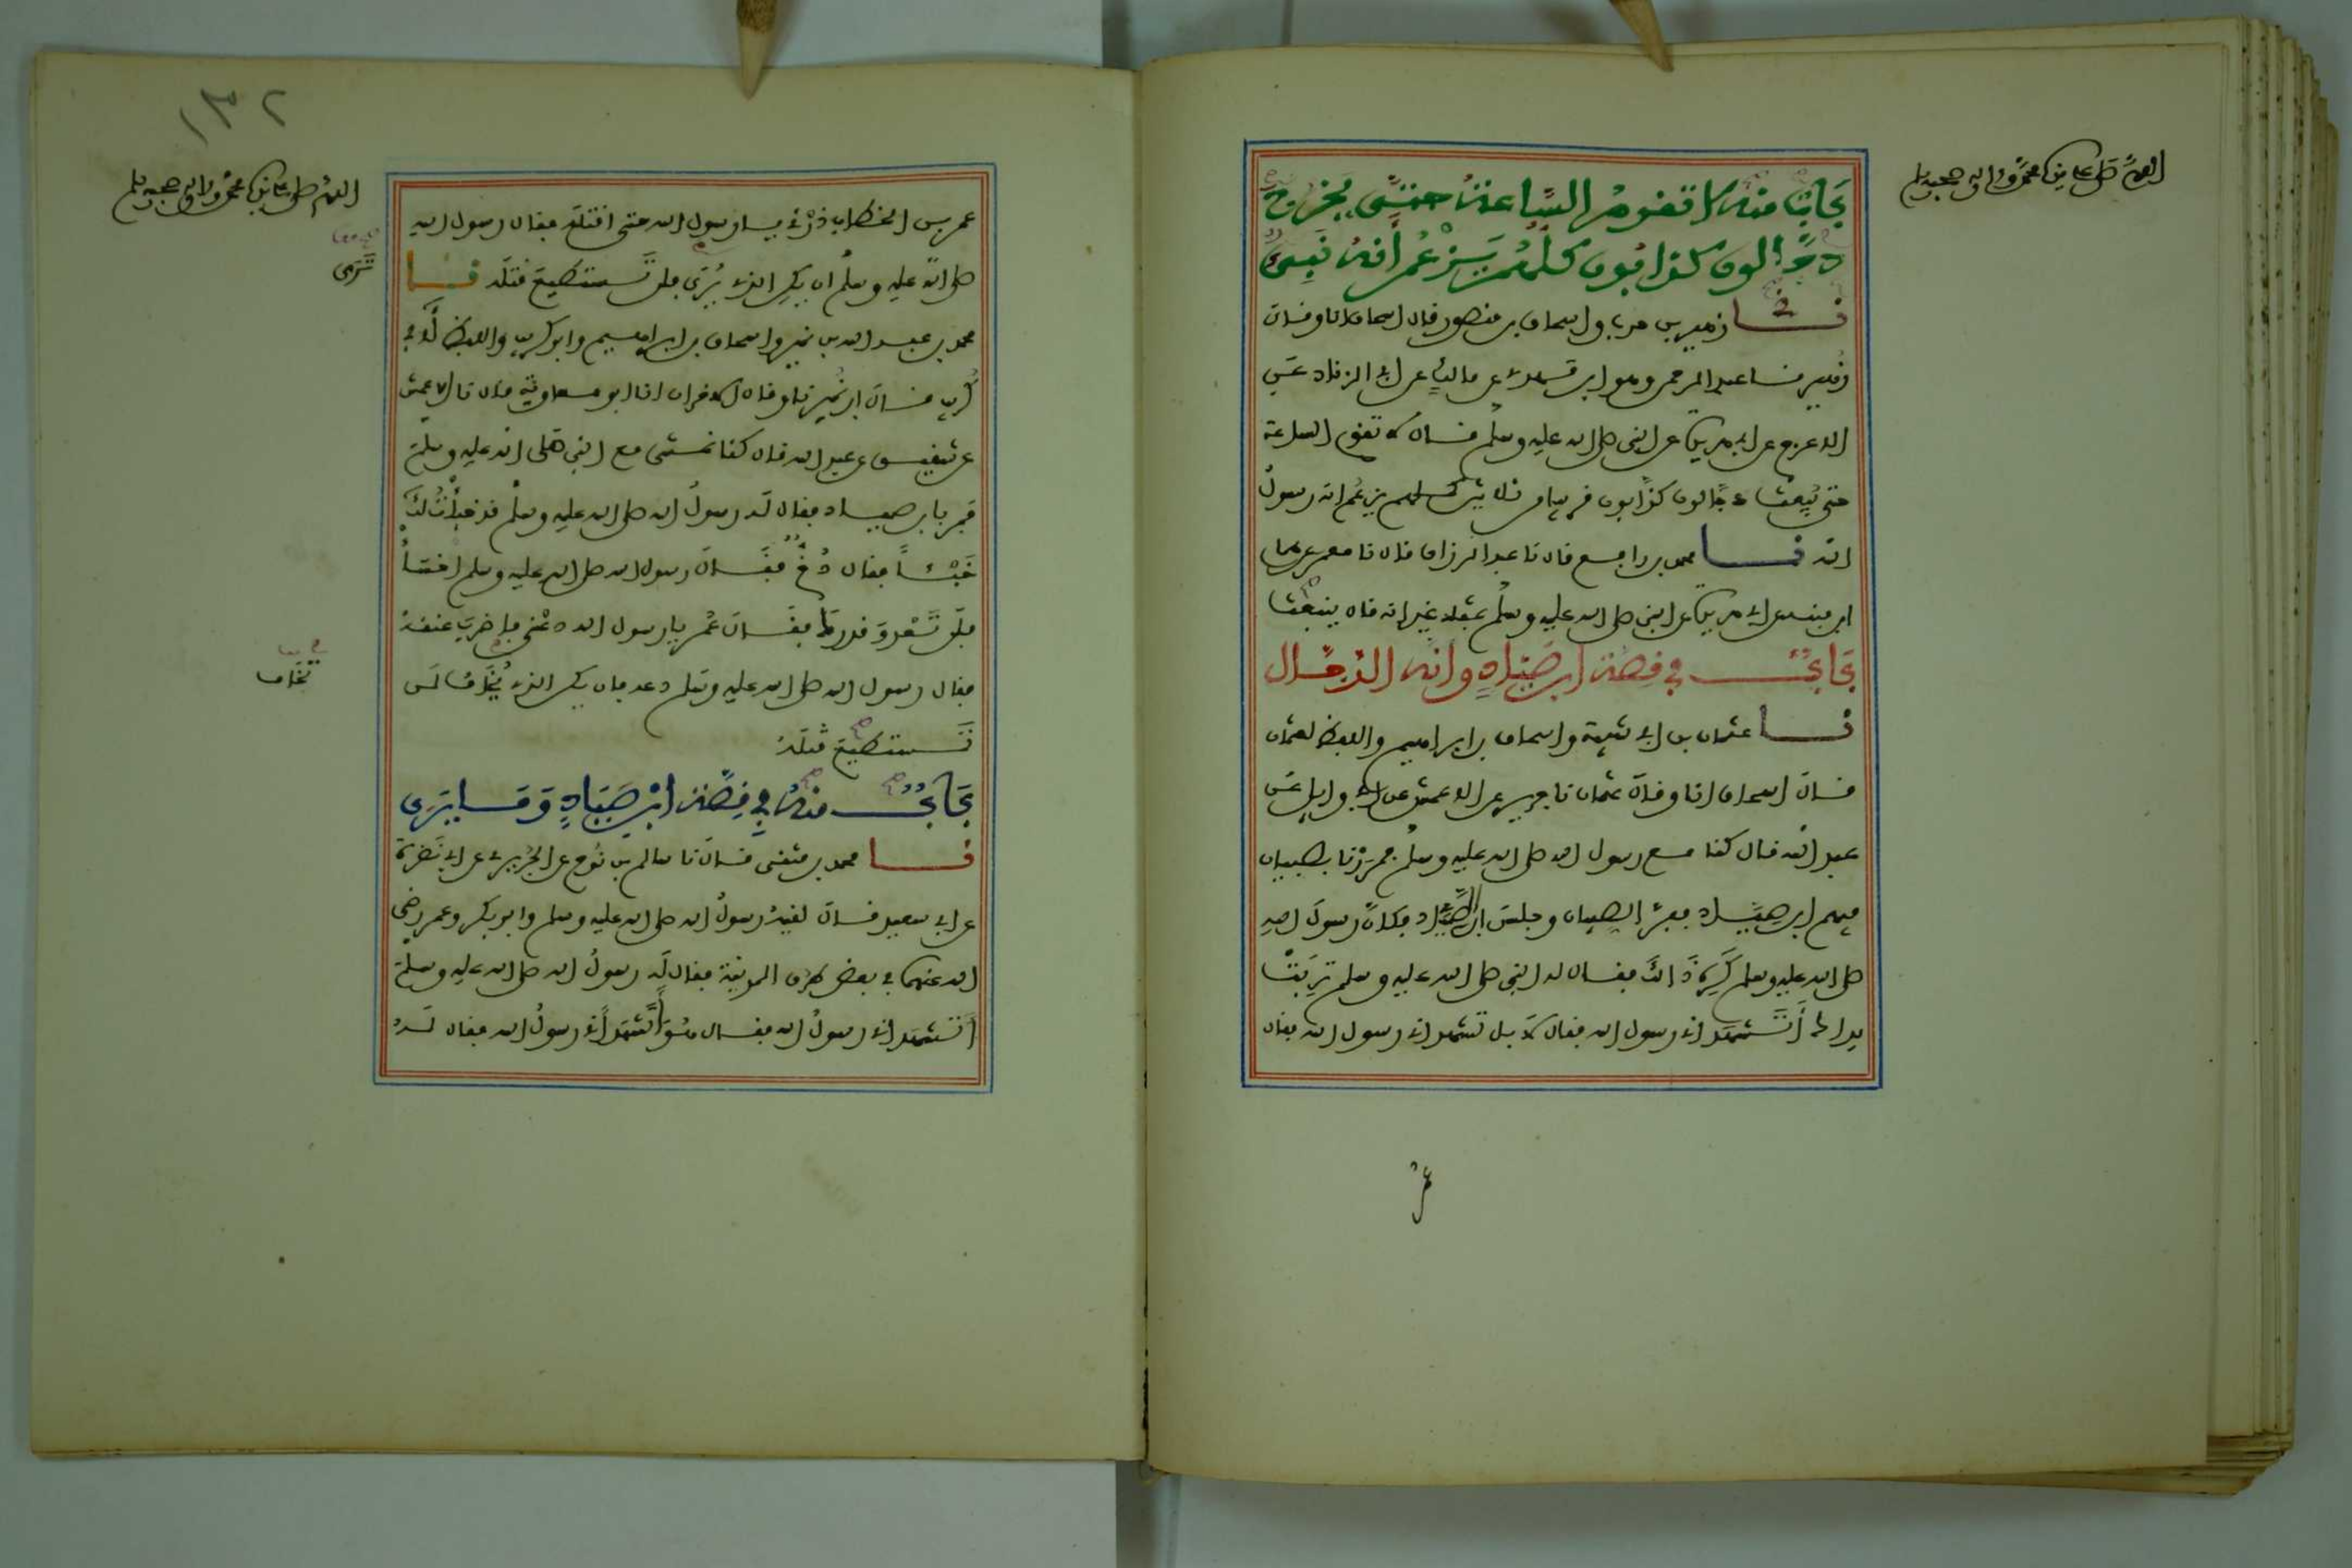 اللهم صل على سيدنا محمد وآله وصحبه وسلم
باب منه لا تقوم الساعة حتى يخرج
دجالون كذابون كلهم يزعم أنه نبي
نا زهير بن حرب واسحاق بن منصور قال اسحاق انا وقال
زهير نا عبد الرحمن وهو ابن مهدي عن مالك عن ابي الزناد عن
الاعرج عن ابي هريرة عن النبي صلى الله عليه وسلم قال لا تقوم الساعة
حتى يبعث دجالون كذابون قريبا من ثلاثين كلهم يزعم انه رسول
الله نا محمد بن رافع قال نا عبد الرزاق قال نا معمر عن همام
ابن منبه عن ابي هريرة عن النبي صلى الله عليه وسلم بمثله غير انه قال ينبعث
باب في قصة ابن صياد وانه الدجال
نا عثمان بن ابي شيبة واسحاق بن ابراهيم واللفظ لعثمان
قال اسحاق انا وقال عثمان نا جرير عن الاعمش عن ابي وايل عن
عبد الله قال كنا مع رسول الله صلى الله عليه وسلم فمررنا بصبيان
فيهم ابن صياد ففر الصبيان وجلس ابن الصياد فكان رسول الله
صلى الله عليه وسلم كره ذلك فقال له النبي صلى الله عليه وسلم تربت
يداك أتشهد اني رسول الله فقال لا بل تشهد اني رسول الله فقال
عمر
١٣٢
اللهم صل على سيدنا محمد وآله وصحبه وسلم
عمر بن الخطاب ذرني يا رسول الله حتى اقتله فقال رسول الله
صلى الله عليه وسلم ان يكن الذي يرى فلن تستطيع قتله نا
ترى
محمد بن عبد الله بن نمير واسحاق بن ابراهيم وابو كريب واللفظ لأبي
كريب قال ابن نمير نا وقال الاخران انا ابو معاوية قال نا الاعمش
عن شقيق عن عبد الله قال كنا نمشي مع النبي صلى الله عليه وسلم
فمر بابن صياد فقال له رسول الله صلى الله عليه وسلم قد خبأت لك
خبئا فقال دخ فقال رسول الله صلى الله عليه وسلم اخسأ
فلن تعدو قدرك فقال عمر يا رسول الله دعني فاضرب عنقه
فقال رسول الله صلى الله عليه وسلم دعه فان يكن الذي يخاف لن
تخاف
تستطيع قتله
باب منه في قصة ابن صياد وما يرى
نا محمد بن مثنى قال نا سالم بن نوح عن الجريري عن ابي نضرة
عن ابي سعيد قال لقيه رسول الله صلى الله عليه وسلم وابو بكر وعمر رضي
الله عنهما في بعض طرق المدينة فقال له رسول الله صلى الله عليه وسلم
أتشهد اني رسول الله فقال هو أتشهد أني رسول الله فقال له